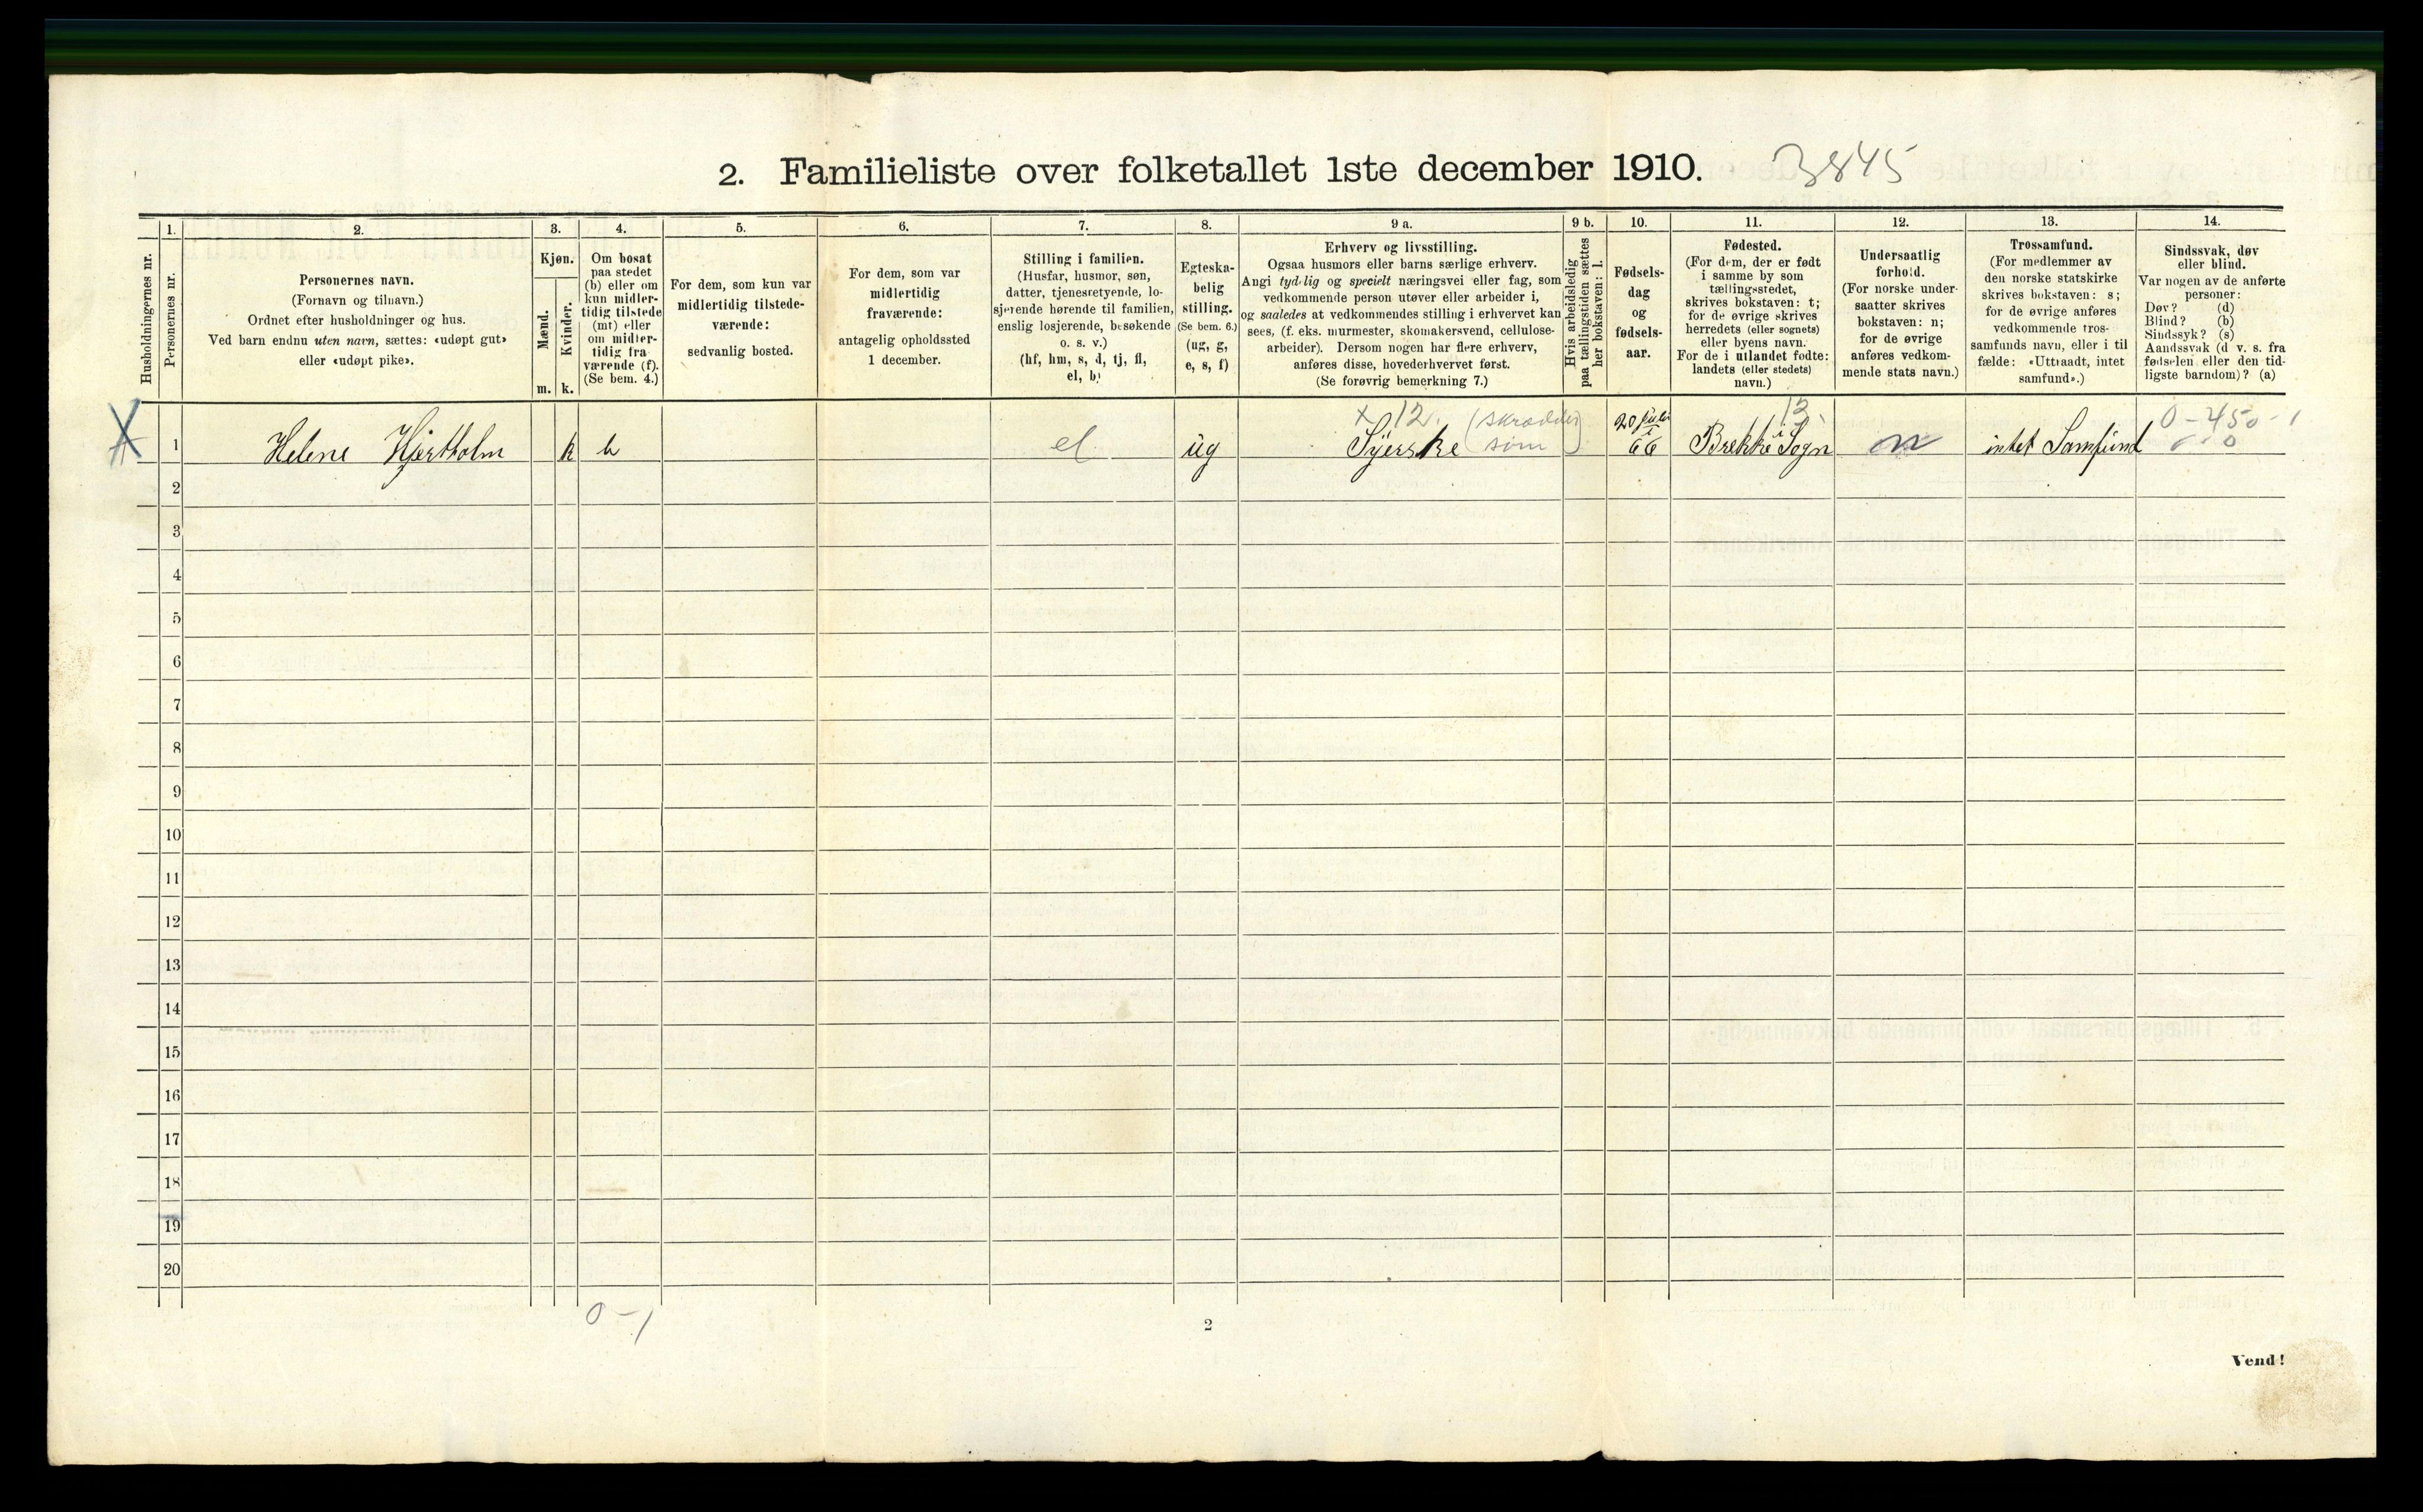 2. Familieliste over folketallet 1ste december 1910. 3845
Husholdningernes nr.
1.
Personernes nr.
2.
Personernes navn.
(Fornavn og tilnavn.)
Ordnet efter husholdninger og hus.
Ved barn endnu uten navn, sættes: «udøpt gut»
eller «udøpt pike».
3.
Kjøn.
Mænd.
Kvinder.
m. k.
4.
Om bosat
paa stedet
(b) eller om
kun midler-
tidig tilstede
(mt) eller
om midler-
tidig fra-
værende (f).
(Se bem. 4.)
5.
For dem, som kun var
midlertidig tilstede-
værende:
sedvanlig bosted.
6.
For dem, som var
midlertidig
fraværende:
antagelig opholdssted
1 december.
7.
Stilling i familien.
(Husfar, husmor, søn,
datter, tjenestetyende, lo-
sjerende hørende til familien,
enslig losjerende, besøkende
o. s. v.)
(hf, hm, s, d, tj, fl,
el, b)
8.
Egteska-
belig
stilling.
(Se bem. 6.)
(ug, g,
e, s, f)
9 a.
Erhverv og livsstilling.
Ogsaa husmors eller barns særlige erhverv.
Angi tydelig og specielt næringsvei eller fag, som
vedkommende person utøver eller arbeider i,
og saaledes at vedkommendes stilling i erhvervet kan
sees, (f. eks. murmester, skomakersvend, cellulose-
arbeider). Dersom nogen har flere erhverv,
anføres disse, hovederhvervet først.
(Se forøvrig bemerkning 7.)
9 b.
Hvis arbeidsledig
paa tællingstiden sættes
her bokstaven: l.
10.
Fødsels-
dag
og
fødsels-
aar.
11.
Fødested.
(For dem, der er født
i samme by som
tællingsstedet,
skrives bokstaven: t;
for de øvrige skrives
herredets (eller sognets)
eller byens navn.
For de i utlandet fødte:
landets (eller stedets)
navn.)
12.
Undersaatlig
forhold.
(For norske under-
saatter skrives
bokstaven: n;
for de øvrige
anføres vedkom-
mende stats navn.)
13.
Trossamfund.
(For medlemmer av
den norske statskirke
skrives bokstaven: s;
for de øvrige anføres
vedkommende tros-
samfunds navn, eller i til-
fælde: «Uttraadt, intet
samfund».)
14.
Sindssvak, døv
eller blind.
Var nogen av de anførte
personer:
Døv? (d)
Blind? (b)
Sindssyk? (s)
Aandssvak (d. v. s. fra
fødselen eller den tid-
ligste barndom)? (a)
X 12. (skrædder 20 juli 12. 0-450-1
X 1 Helene Hjertholm k b el ug Syerske søm) 66 Brekke i Sogn n intet Samfund 0
2
3
4
5
6
7
8
9
10
11
12
13
14
15
16
17
18
19
20
0-1
2
Vend!